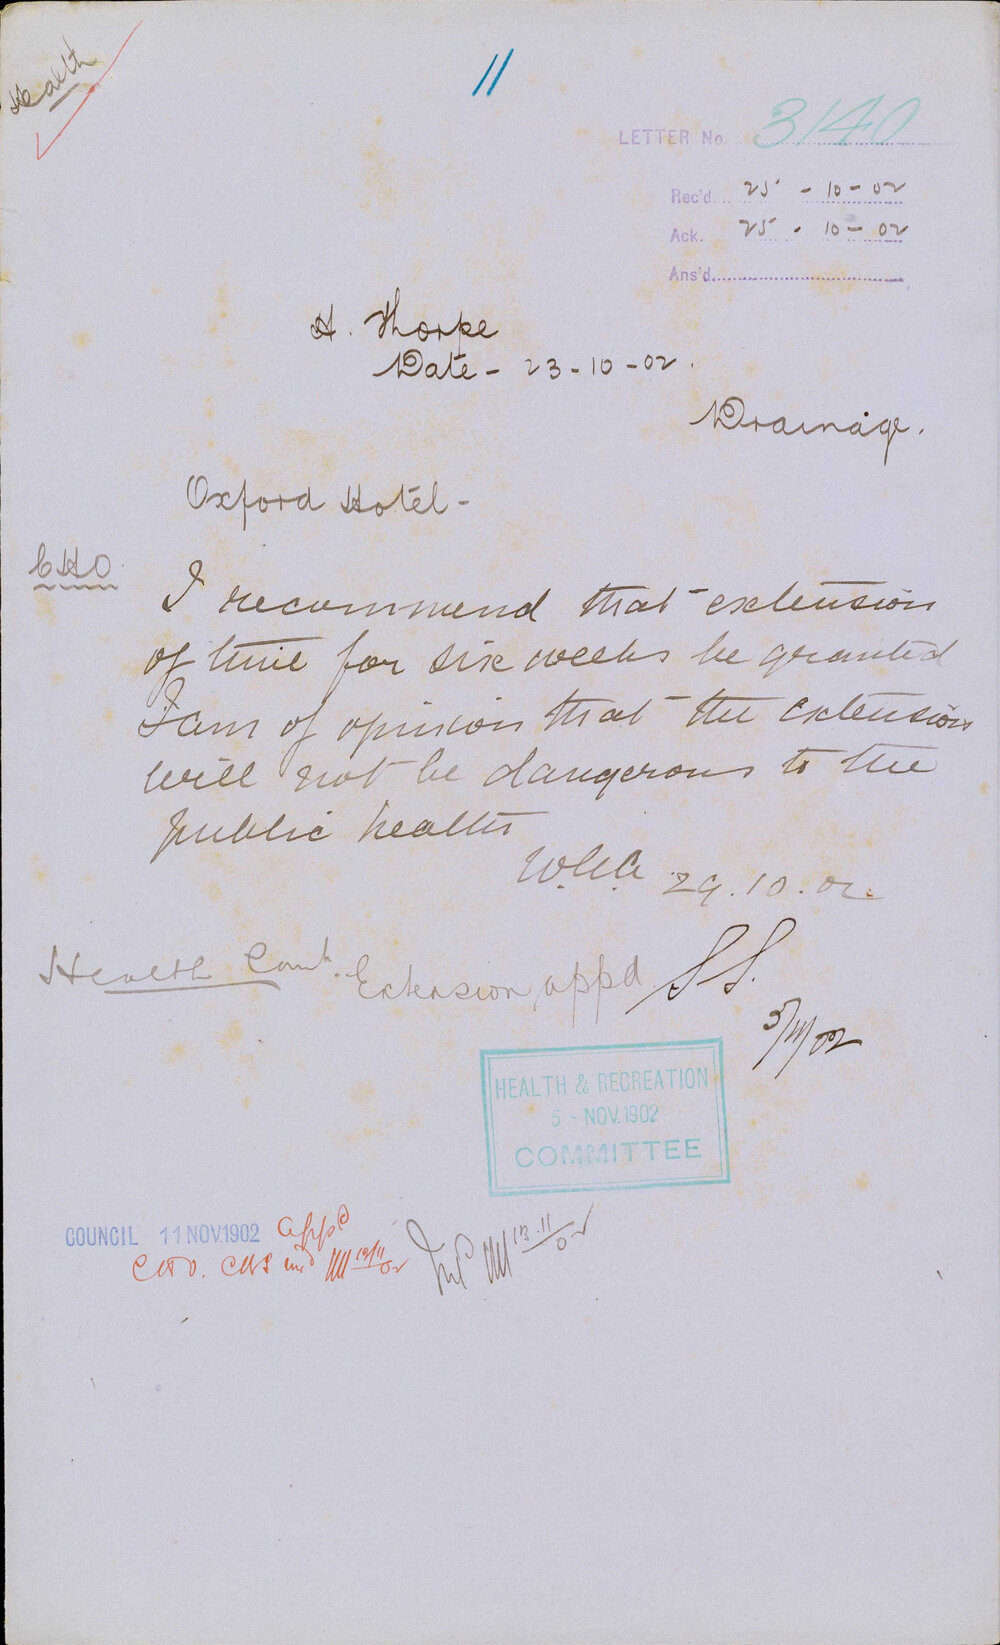 Health
11
LETTER No. 3140
Rec'd. 25 - 10 - 02
Ack. 25 - 10 - 02
Ans'd.
H. Thorpe
Date - 23 - 10 - 02.
Drainage.
Oxford Hotel -
CHO
I recommend that extension
of time for six weeks be granted
I am of opinion that the extension
will not be dangerous to the
public health
29.10.02.
Health Comt. Extension appd SS.
5/11/02
HEALTH & RECREATION
5 - NOV. 1902
COMMITTEE
COUNCIL 11 NOV. 1902 appd
13.11/02